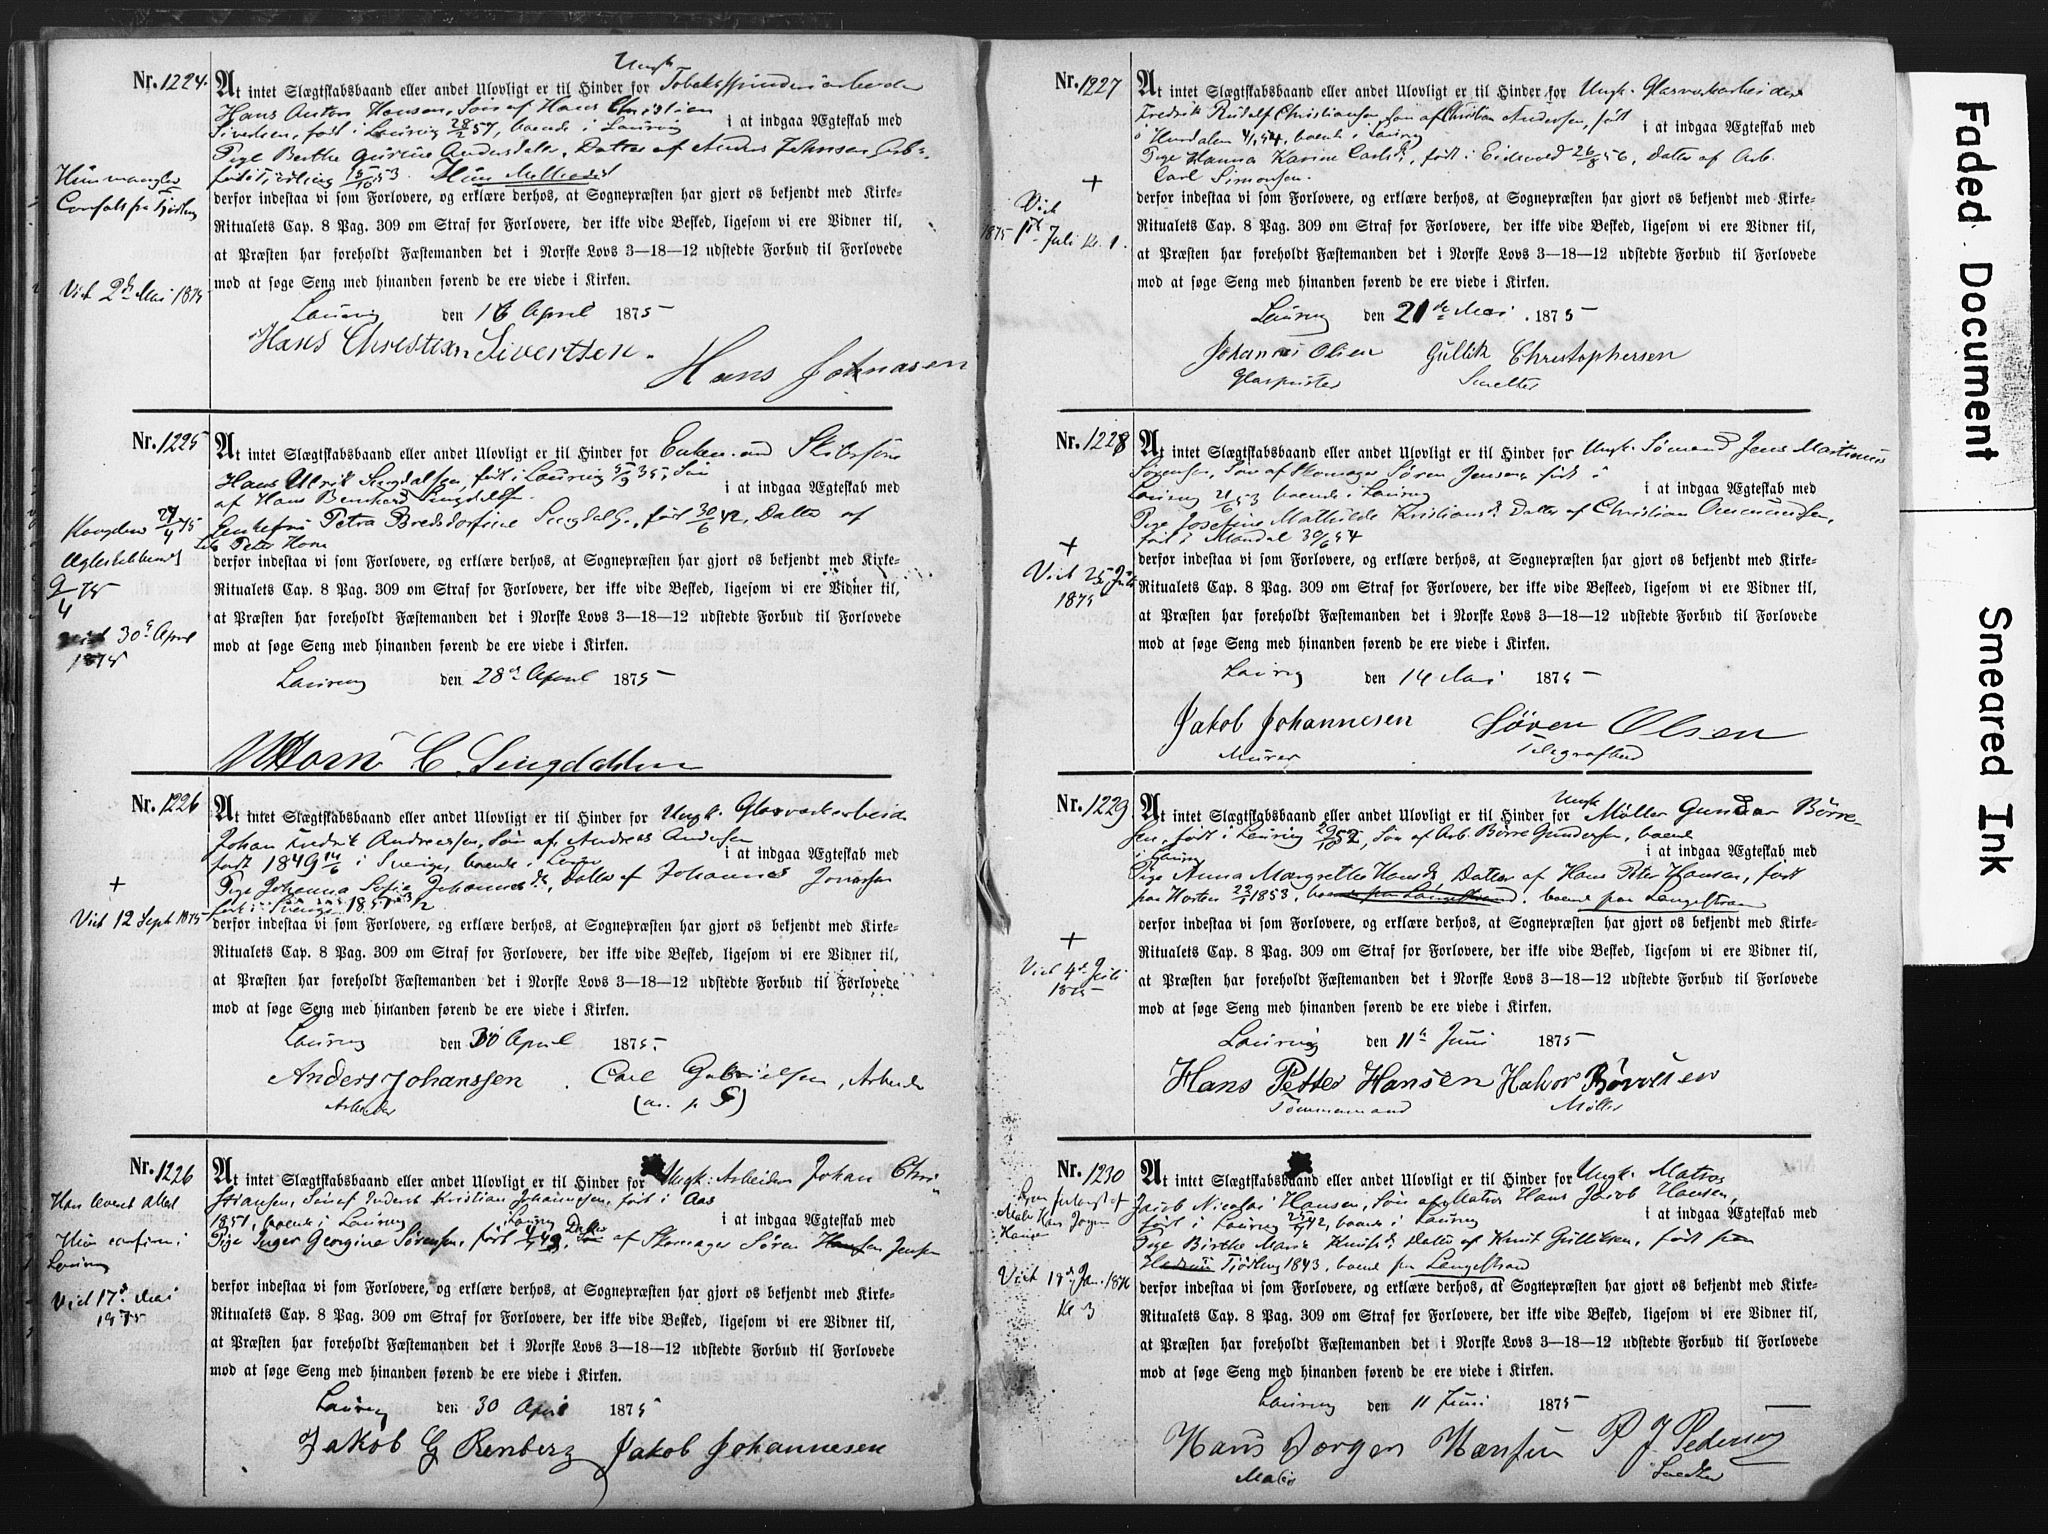 Nr. 1224. At intet Slægtskabsbaand eller andet Ulovligt er til Hinder for Ungk. Tobaksspinderiarbeider
Hans Anton Hansen, Søn af Hans Christian
Sivertsen, født i Laurvig 28/2 57, boende i Laurvig i at indgaa Ægteskab med
Pige Berthe Gurine Andersdatter, Datter af Anders Johnsen, Arb.
født i Tjødling 15/10 53.
Hun mangler
Conf.att. fra Tjødling
derfor indestaa vi som Forlovere, og erklære derhos, at Sognepræsten har gjort os bekjendt med Kirke-
Ritualets Cap. 8 Pag. 309 om Straf for Forlovere, der ikke vide Besked, ligesom vi ere Vidner til,
at Præsten har foreholdt Fæstemanden det i Norske Lovs 3—18—12 udstedte Forbud til Forlovede
mod at søge Seng med hinanden førend de ere viede i Kirken.
Viet 2d Mai 1875
Laurvig den 16 April 1875
Hans Christian Sivertsen. Hans Johnasen
Nr. 1225 At intet Slægtskabsbaand eller andet Ulovligt er til Hinder for Enkemand Skibsfører
Hans Ulrik Lingdalsen, født i Laurvig 5/9 35, Søn
af Hans Bernhard Lingdalsen. i at indgaa Ægteskab med
Enkefru Petra Bredsdorfine født 30/6 42, Datter af
Peter Horn
9/4 75
derfor indestaa vi som Forlovere, og erklære derhos, at Sognepræsten har gjort os bekjendt med Kirke-
Ritualets Cap. 8 Pag. 309 om Straf for Forlovere, der ikke vide Besked, ligesom vi ere Vidner til,
at Præsten har foreholdt Fæstemanden det i Norske Lovs 3—18—12 udstedte Forbud til Forlovede
mod at søge Seng med hinanden førend de ere viede i Kirken.
Viet 30d April
1875
Laurvig den 28de April 1875
Horn C Lingdahlsen
Nr. 1226 At intet Slægtskabsbaand eller andet Ulovligt er til Hinder for Ungk. Glasværkarbeid.
Johan Andreassen, Søn af Andreas Andersen
født 1849 14/6 i Sverige, boende i Laurvig i at indgaa Ægteskab med
Pige Johanna Sofie Johannesd., Datter af Johannes Jonassen
født i Sverige 1851
+
Viet 12 Sept 1875
derfor indestaa vi som Forlovere, og erklære derhos, at Sognepræsten har gjort os bekjendt med Kirke-
Ritualets Cap. 8 Pag. 309 om Straf for Forlovere, der ikke vide Besked, ligesom vi ere Vidner til,
at Præsten har foreholdt Fæstemanden det i Norske Lovs 3—18—12 udstedte Forbud til Forlovede
mod at søge Seng med hinanden førend de ere viede i Kirken.
Laurvig den 30 April 1875.
Anders Johanssen . Carl Gabrielsen, Arbeider
Arbeider (m. p. P)
Nr. 1226 At intet Slægtskabsbaand eller andet Ulovligt er til Hinder for Ungk. Arbeider Johan Chri-
stiansen, Søn af Inderst Kristian Johannesen, født i Aas
1851, boende i Laurvig i at indgaa Ægteskab med
Pige Inger Georgine Sørensen, født Laurvig 49, Datter af Skomager Søren Jensen
Han leveret Attest
Hun confirm. i
Laurvig
Viet 17d Mai
1875
derfor indestaa vi som Forlovere, og erklære derhos, at Sognepræsten har gjort os bekjendt med Kirke-
Ritualets Cap. 8 Pag. 309 om Straf for Forlovere, der ikke vide Besked, ligesom vi ere Vidner til,
at Præsten har foreholdt Fæstemanden det i Norske Lovs 3—18—12 udstedte Forbud til Forlovede
mod at søge Seng med hinanden førend de ere viede i Kirken.
Laurvig den 30 April 1875
Jakob G Renberg Jakob Johannesen
Nr. 1227 At intet Slægtskabsbaand eller andet Ulovligt er til Hinder for Ungk. Glasværkarbeider
Fredrik Rudolf Christiansen, Søn af Christian Andersen, født
i Hurdalen 4/1 54, boende i Laurvig i at indgaa Ægteskab med
Pige Hanna Karine Carlsd., født i Eidsvold 26/8 56, Datter af Arb.
Carl Simonsen.
+
Viet
1875 1ste Juli Kl. 1.
derfor indestaa vi som Forlovere, og erklære derhos, at Sognepræsten har gjort os bekjendt med Kirke-
Ritualets Cap. 8 Pag. 309 om Straf for Forlovere, der ikke vide Besked, ligesom vi ere Vidner til,
at Præsten har foreholdt Fæstemanden det i Norske Lovs 3—18—12 udstedte Forbud til Forlovede
mod at søge Seng med hinanden førend de ere viede i Kirken.
Laurvig den 21de Mai 1875
Johannes Olsen Gullik Christophersen
Glaspuster Smelter
Nr. 1228 At intet Slægtskabsbaand eller andet Ulovligt er til Hinder for Ungk. Sømand Jens Martinius
Sørensen, Søn af Skomager Søren Jensen, født i
Laurvig 21/6 53 boende i Laurvig i at indgaa Ægteskab med
Pige Josefine Mathilde Kristiansd. Datter af Christian Ommundsen,
født i Mandal 30/6 54
+
Viet 25 Juli
1875
derfor indestaa vi som Forlovere, og erklære derhos, at Sognepræsten har gjort os bekjendt med Kirke-
Ritualets Cap. 8 Pag. 309 om Straf for Forlovere, der ikke vide Beskeed, ligesom vi ere Vidner til,
at Præsten har foreholdt Fæstemanden det i Norske Lovs 3—18—12 udstedte Forbud til Forlovede
mod at søge Seng med hinanden førend de ere viede i Kirken.
Laurvig den 14 Mai 1875
Jakob Johannesen Søren Olsen
Murer Telegrafbud
Nr. 1229 At intet Slægtskabsbaand eller andet Ulovligt er til Hinder for Ungk. Møller Gunder Børre-
sen, født i Laurvig 29/10 52, Søn af Arb. Børre Gundersen, boende
i Laurvig i at indgaa Ægteskab med
Pige Anna Margrethe Hansd. Datter af Hans Peter Hansen, født
paa Horten 1853, boende paa Langestrand, boende paa Langestrand
+
Viet 4d Juli
1875
derfor indestaa vi som Forlovere, og erklære derhos, at Sognepræsten har gjort os bekjendt med Kirke-
Ritualets Cap. 8 Pag. 309 om Straf for Forlovere, der ikke vide Besked, ligesom vi ere Vidner til,
at Præsten har foreholdt Fæstemanden det i Norske Lovs 3—18—12 udstedte Forbud til Forlovede
mod at søge Seng med hinanden førend de ere viede i Kirken.
Laurvig den 11te Juni 1875
Hans Petter Hansen Halvor Børresen
Tømmermand Møller
Nr. 1230 At intet Slægtskabsbaand eller andet Ulovligt er til Hinder for Ungk. Matros
Jacob Nicolai Hansen, Søn af Matros Hans Jacob Hansen,
født i Laurvig 42, boende i Laurvig i at indgaa Ægteskab med
Pige Birthe Marie Knutsd. Datter af Knut Gulliksen, født
Tjødling 1843, boende paa Langestrand
Maler Hans Jørgen
Hansen
Viet 18d Jan. 1876
Kl 3
derfor indestaa vi som Forlovere, og erklære derhos, at Sognepræsten har gjort os bekjendt med Kirke-
Ritualets Cap. 8 Pag. 309 om Straf for Forlovere, der ikke vide Besked, ligesom vi ere Vidner til,
at Præsten har foreholdt Fæstemanden det i Norske Lovs 3—18—12 udstedte Forbud til Forlovede
mod at søge Seng med hinanden førend de ere viede i Kirken.
Laurvig den 11 Juni 1875
Hans Jørgen Hansen P J Pedersen
Maler Snedker
Faded Document
Smeared Ink